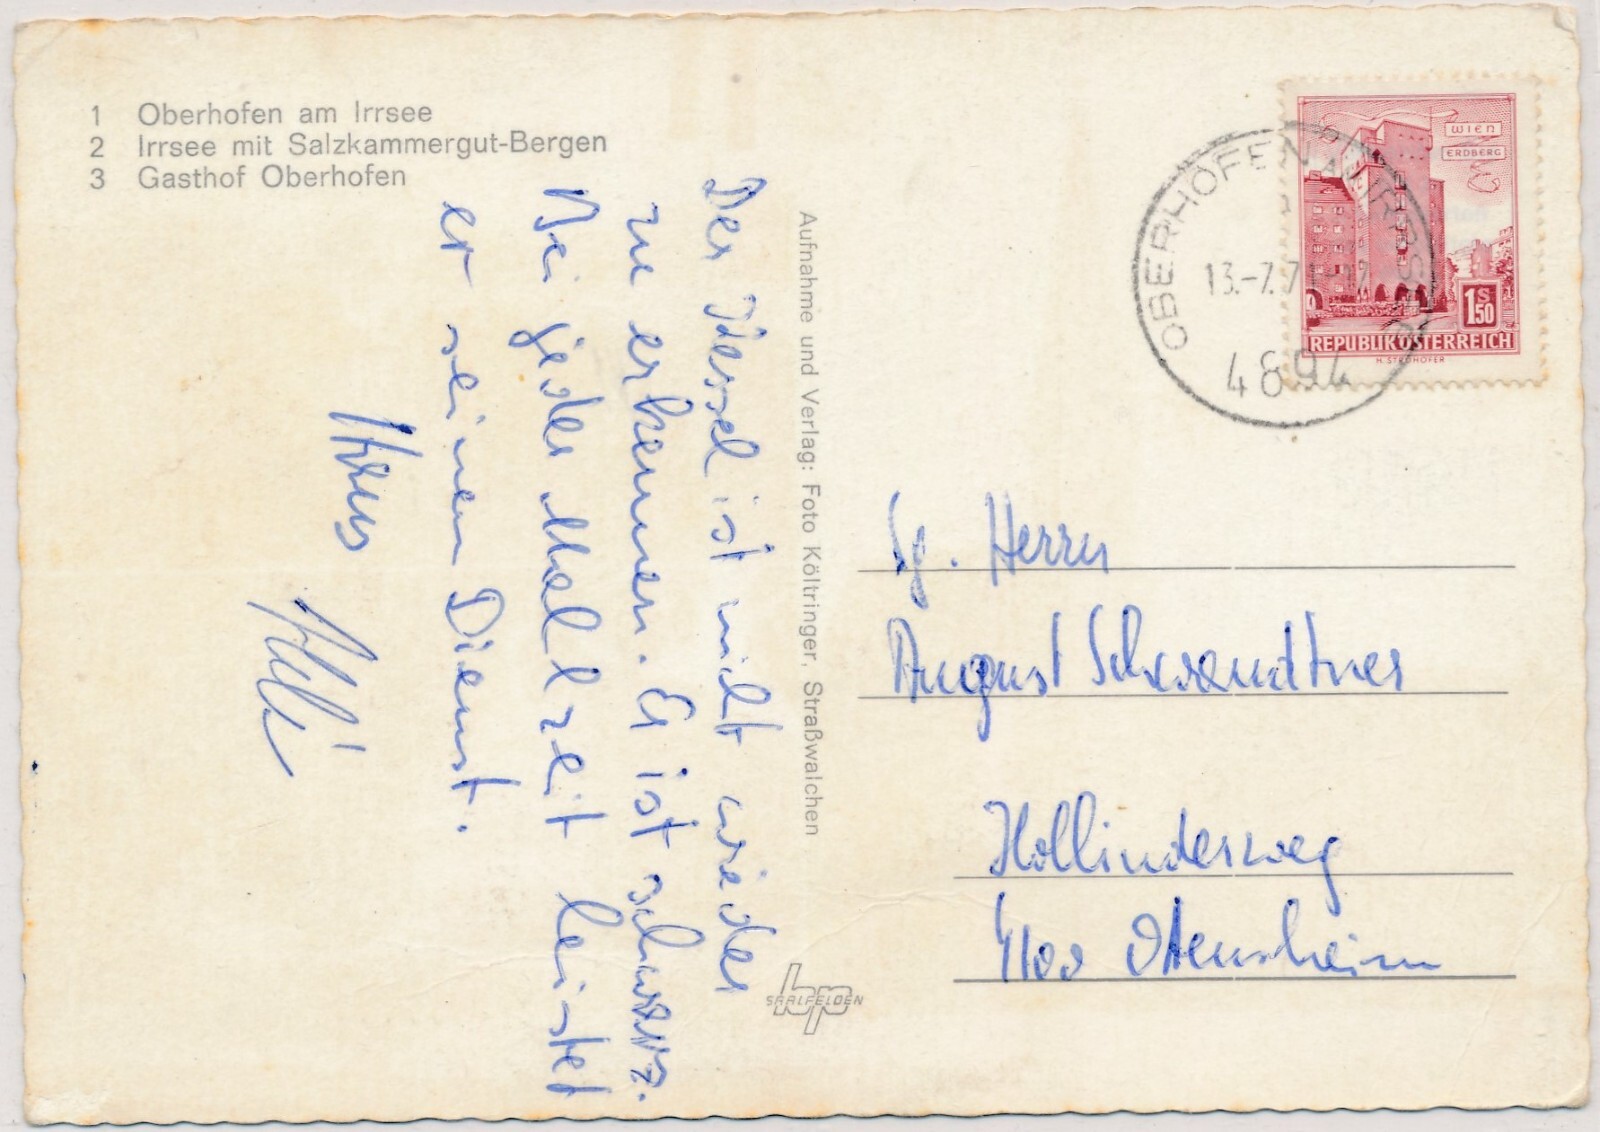 1 Oberhofen am Irrsee
2 Irrsee mit Salzkammergut-Bergen
3 Gasthof Oberhofen
Der Kessel ist nicht wieder
zu erkennen. Er ist schwarz.
Bei jeder Mahlzeit leistet
er seinen Dienst.
Hans
Aufnahme und Verlag: Foto Költringer, Straßwalchen
hp
SAALFELDEN
WIEN
ERDBERG
1S50
REPUBLIK ÖSTERREICH
H. STROHOFER
OBERHOFEN A. IRRSEE
13.-7.71
4894
Sg. Herrn
August Schwandtner
Hollinderweg
4100 Ottensheim